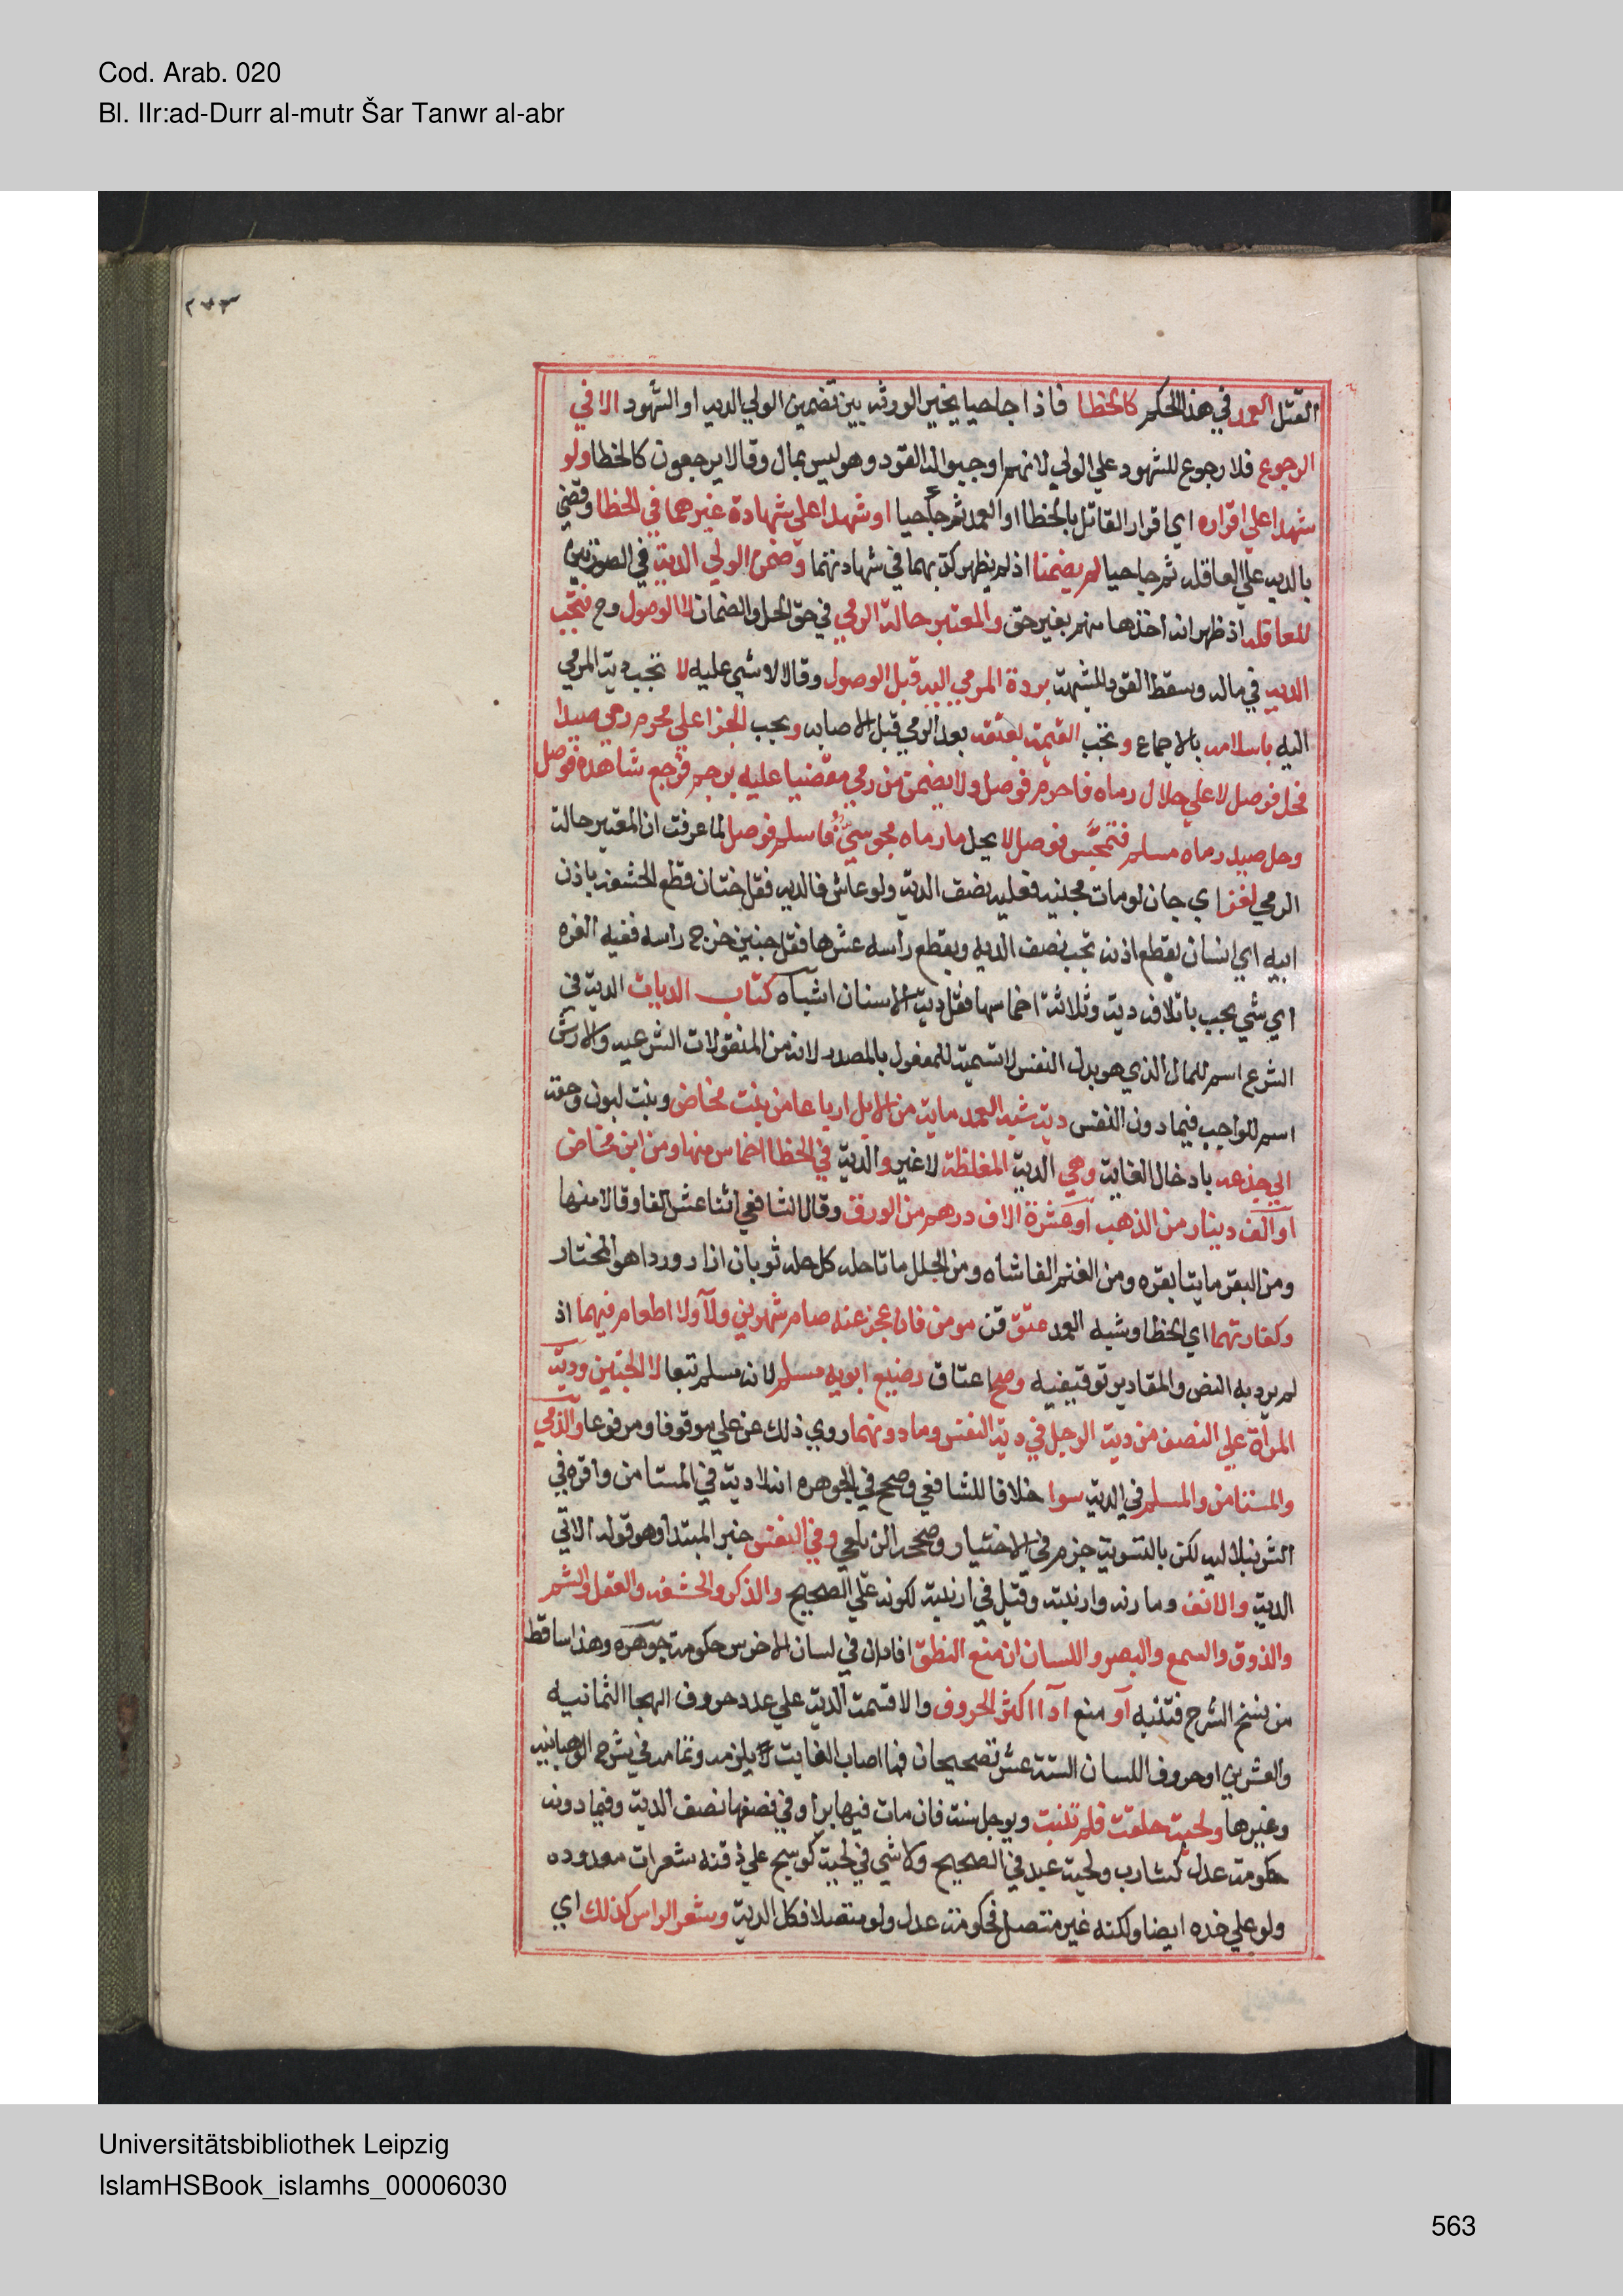 Cod. Arab. 020
Bl. IIr:ad-Durr al-mutr Šar Tanwr al-abr
٢٧٣
القتل العمد في هذا الحكم كالخطا فاذا جا حيا يخير الورثه بين تضمين الولي الديه او الشهود الا في
الرجوع فلا رجوع للشهود على الولي لانهم اوجبوا له القود وهو ليس بمال وقالا يرجعون كالخطا ولو
شهدا على اقراره اي اقرار القاتل بالخطا او العمد ثم جا حيا او شهدا على شهادة غيرهما في الخطا وقضي
بالديه على العاقله ثم جا حيا لم يضمنا اذ لم يظهر كذبهما في شهادتهما وضمن الولي الدية في الصورتين
للعاقله اذ ظهر انه اخذها منهم بغير حق والمعتبر حالة الرمي في حق الحل والضمان لا الوصول وح فتجب
الديه في ماله وسقط القود للشبهة بردة المرمي اليه قبل الوصول وقالا لا شي عليه لا تجب دية المرمي
اليه باسلامه بالاجماع وتجب القيمة بعتقه بعد الرمي قبل الاصابه ويجب الجزا على محرم رمى صيدا
فحل فوصل لا على حلال رماه فاحرم فوصل ولا يضمن من رمى مقضيا عليه برجم فرجع شاهده فوصل
وحل صيد رماه مسلم فتمجس فوصل لا يحل ما رماه مجوسي فاسلم فوصل لما عرفت ان المعتبر حالة
الرمي لغز اي جان لو مات مجنيه فعليه نصف الدية ولو عاش فالديه فقل ختان قطع الحشفة باذن
ابيه اي انسان بقطع اذنه تجب نصف الديه وبقطع رأسه عشرها فقل جنين خرج راسه ففيه الغره
اي شي يجب باتلافه دية وثلاثة اخماسها فقل دية الاسنان اشباه كتاب الديات الدية في
الشرع اسم للمال الذي هو بدل النفس لا تسمية للمفعول بالمصدر لانه من المنقولات الشرعيه والارش
اسم للواجب فيما دون النفس دية شبه العمد ماية من الابل ارباعا من بنت مخاض وبنت لبون وحقه
الى جذعه بادخال الغاية وهي الدية المغلظة لا غير والدية في الخطا اخماس منها ومن ابن مخاض
او الف دينار من الذهب او عشرة الاف درهم من الورق وقال الشافعي اثنا عشر الفا وقالا منها
ومن البقر مايتا بقره ومن الغنم الفا شاه ومن الحلل ماتا حله كل حله ثوبان ازار وردا هو المختار
وكفارتهما اي الخطا وشبه العمد عتق قن مومن فان عجز عنه صام شهرين ولاا ولا اطعام فيهما اذ
لم يرد به النص والمقادير توقيفيه وصح اعتاق رضيع ابويه مسلم لانه مسلم تبعا لا الجنين ودية
المرأة على النصف من دية الرجل في دية النفس وما دونهما روي ذلك عن علي موقوفا ومرفوعا والذمي
والمستامن والمسلم في الدية سوا خلافا للشافعي وصحح في الجوهره انه لا دية في المستامن واقره في
الشرنبلاليه لكن بالتسوية جزم في الاختيار وصححه الزيلعي وفي النفس خبر المبتدا وهو قوله الاتي
الدية والانف ومارنه وارنبته وقيل في ارنبته لكونه على الصحيح والذكر والحشفه والعقل والشم
والذوق والسمع والبصر واللسان ان منع النطق افاد ان في لسان الاخرس حكومة جوهره وهذا ساقط
من نسخ الشرح فتنبه او منع ادا اكثر الحروف والا قسمت الدية على عدد حروف الهجا الثمانيه
والعشرين او حروف اللسان الستة عشر تصحيحان فما اصاب الغايت يلزمه وتمامه في شرح الوهبانيه
وغيرها ولحية حلقت فلم تنبت ويوجل سنة فان مات فيها برأ وفي نصفها نصف الدية وفيما دونه
حكومة عدل كشارب ولحية عبد في الصحيح ولا شي في لحية كوسج على ذقنه شعرات معدوده
ولو على خده ايضا ولكنه غير متصل فحكومة عدل ولو متصلا فكل الدية وشعر الراس كذلك اي
Universitätsbibliothek Leipzig
IslamHSBook_islamhs_00006030
563